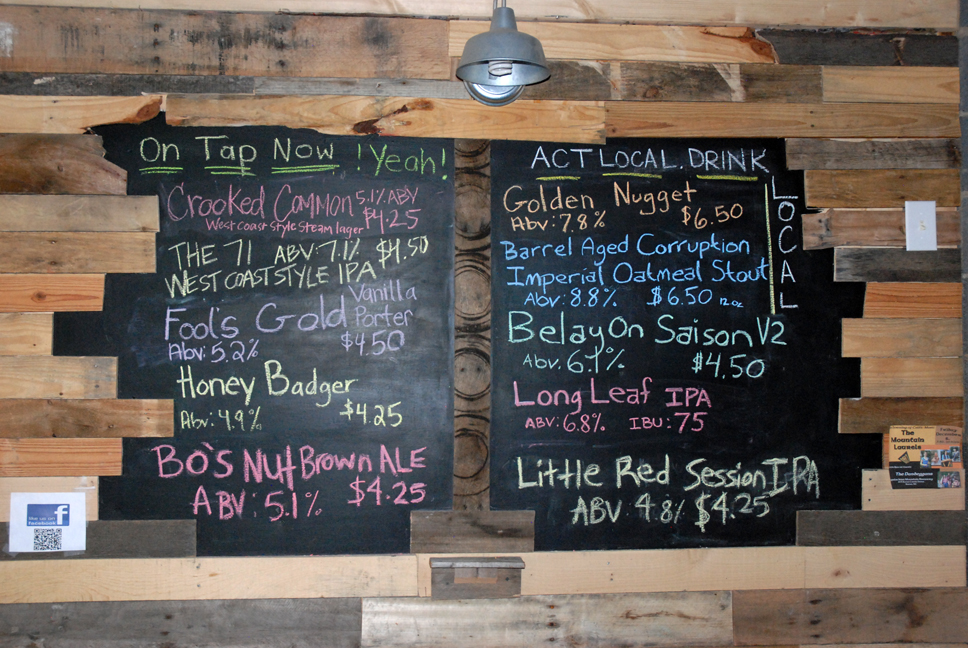 On Tap Now ! Yeah!
Crooked Common 5.1% ABV
West coast style Steam lager $4.25
THE 71 ABV: 7.1% $4.50
WEST COAST STYLE IPA
Fool's Gold Vanilla Porter
Abv: 5.2% $4.50
Honey Badger
Abv: 4.9% $4.25
BO'S NUt BROWN ALE
ABV: 5.1% $4.25
ACT LOCAL. DRINK
LOCAL
Golden Nugget
Abv: 7.8% $6.50
Barrel Aged Corruption
Imperial Oatmeal Stout
Abv: 8.8% $6.50 12oz
Belay On Saison V2
Abv. 6.7% $4.50
Long Leaf IPA
ABV: 6.8% IBU: 75
Little Red Session IPA
ABV 4.8% $4.25
f
The
Mountain
Laurels